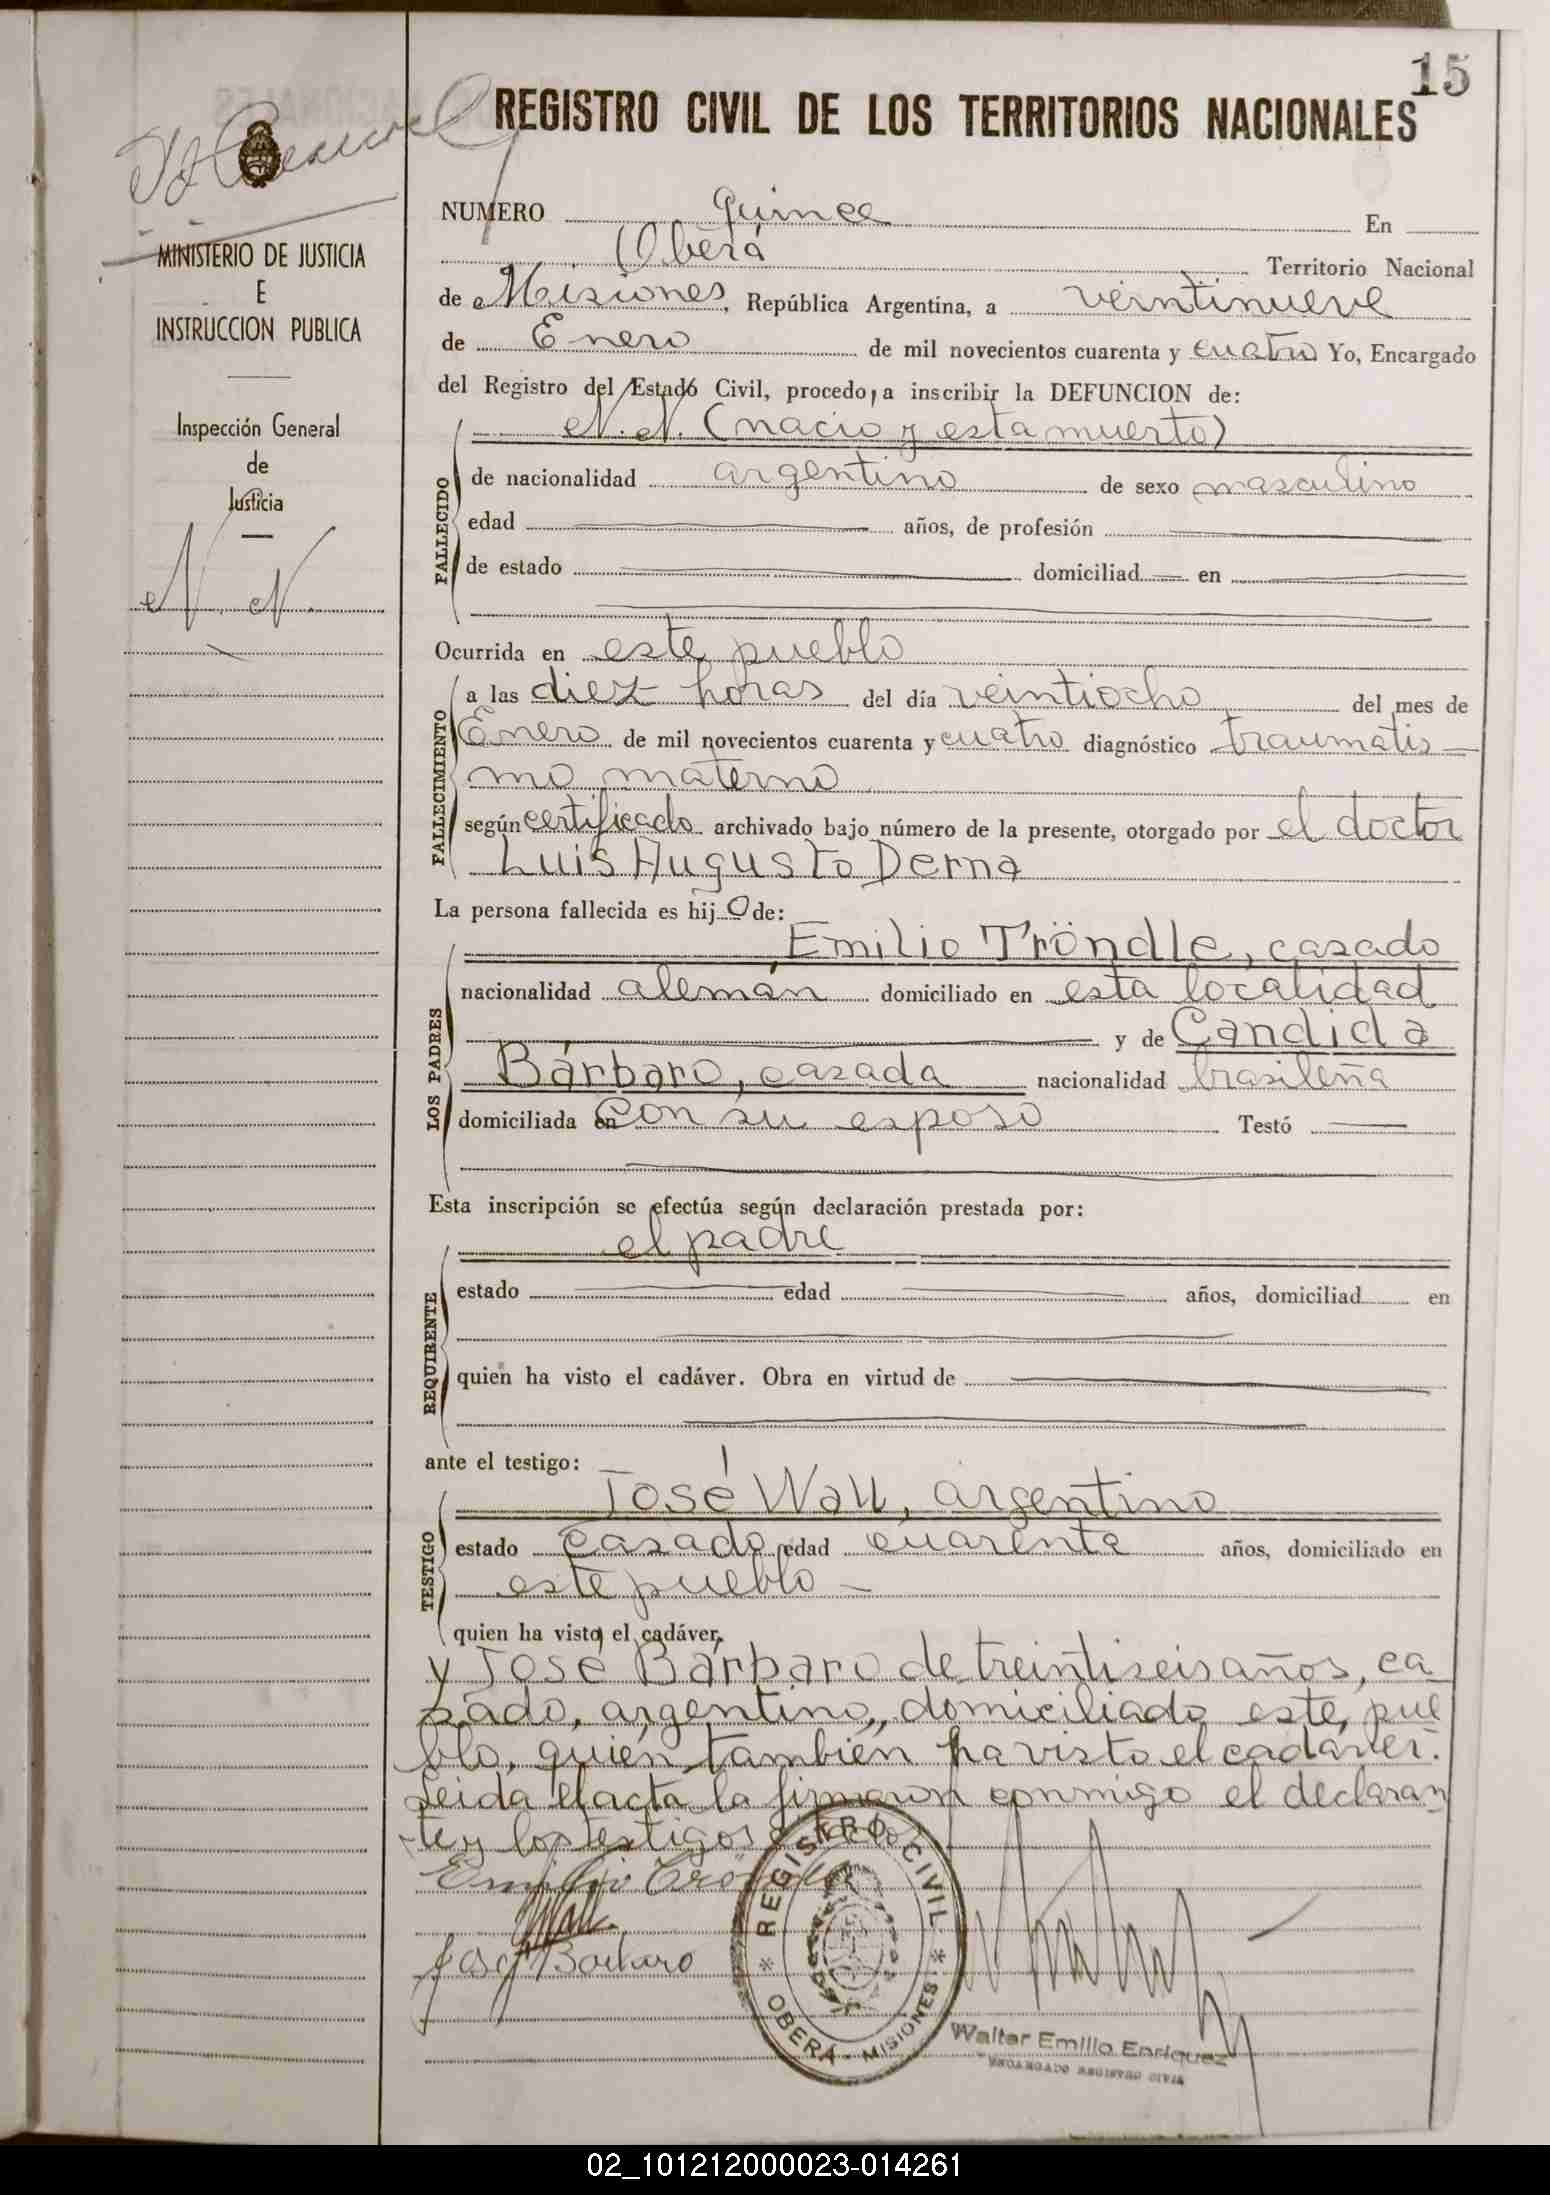 15
REGISTRO CIVIL DE LOS TERRITORIOS NACIONALES
MINISTERIO DE JUSTICIA
E
INSTRUCCION PUBLICA
Inspección General
de
Justicia
N. N.
NUMERO quince En
Oberá Territorio Nacional
de Misiones, República Argentina, a veintinueve
de Enero de mil novecientos cuarenta y cuatro Yo, Encargado
del Registro del Estado Civil, procedo, a inscribir la DEFUNCION de:
N. N. (nacio y esta muerto)
FALLECIDO
de nacionalidad argentino de sexo masculino
edad años, de profesión
de estado domiciliad en
Ocurrida en este pueblo
FALLECIMIENTO
a las diez horas del día veintiocho del mes de
Enero de mil novecientos cuarenta y cuatro diagnóstico traumatis-
mo materno
según certificado archivado bajo número de la presente, otorgado por el doctor
Luis Augusto Derna
La persona fallecida es hijo de:
LOS PADRES
Emilio Tröndle, casado
nacionalidad alemán domiciliado en esta localidad
y de Candida
Bárbaro, casada nacionalidad brasileña
domiciliada en con su esposo Testó
Esta inscripción se efectúa según declaración prestada por:
REQUIRENTE
el padre
estado edad años, domiciliad en
quien ha visto el cadáver. Obra en virtud de
ante el testigo:
TESTIGO
José Wall, argentino
estado casado edad cuarenta años, domiciliado en
este pueblo -
quien ha visto el cadáver,
y José Bárbaro de treintiseis años, ca
sado, argentino, domiciliado este, pue
blo, quien también ha visto el cadaver.
Leida el acta la firmaron conmigo el declaran
te y los testigos
Emilio Tröndle
Wall
José Barbaro
REGISTRO CIVIL
* OBERÁ - MISIONES *
Walter Emilio Enriquez
ENCARGADO REGISTRO CIVIL
02_101212000023-014261